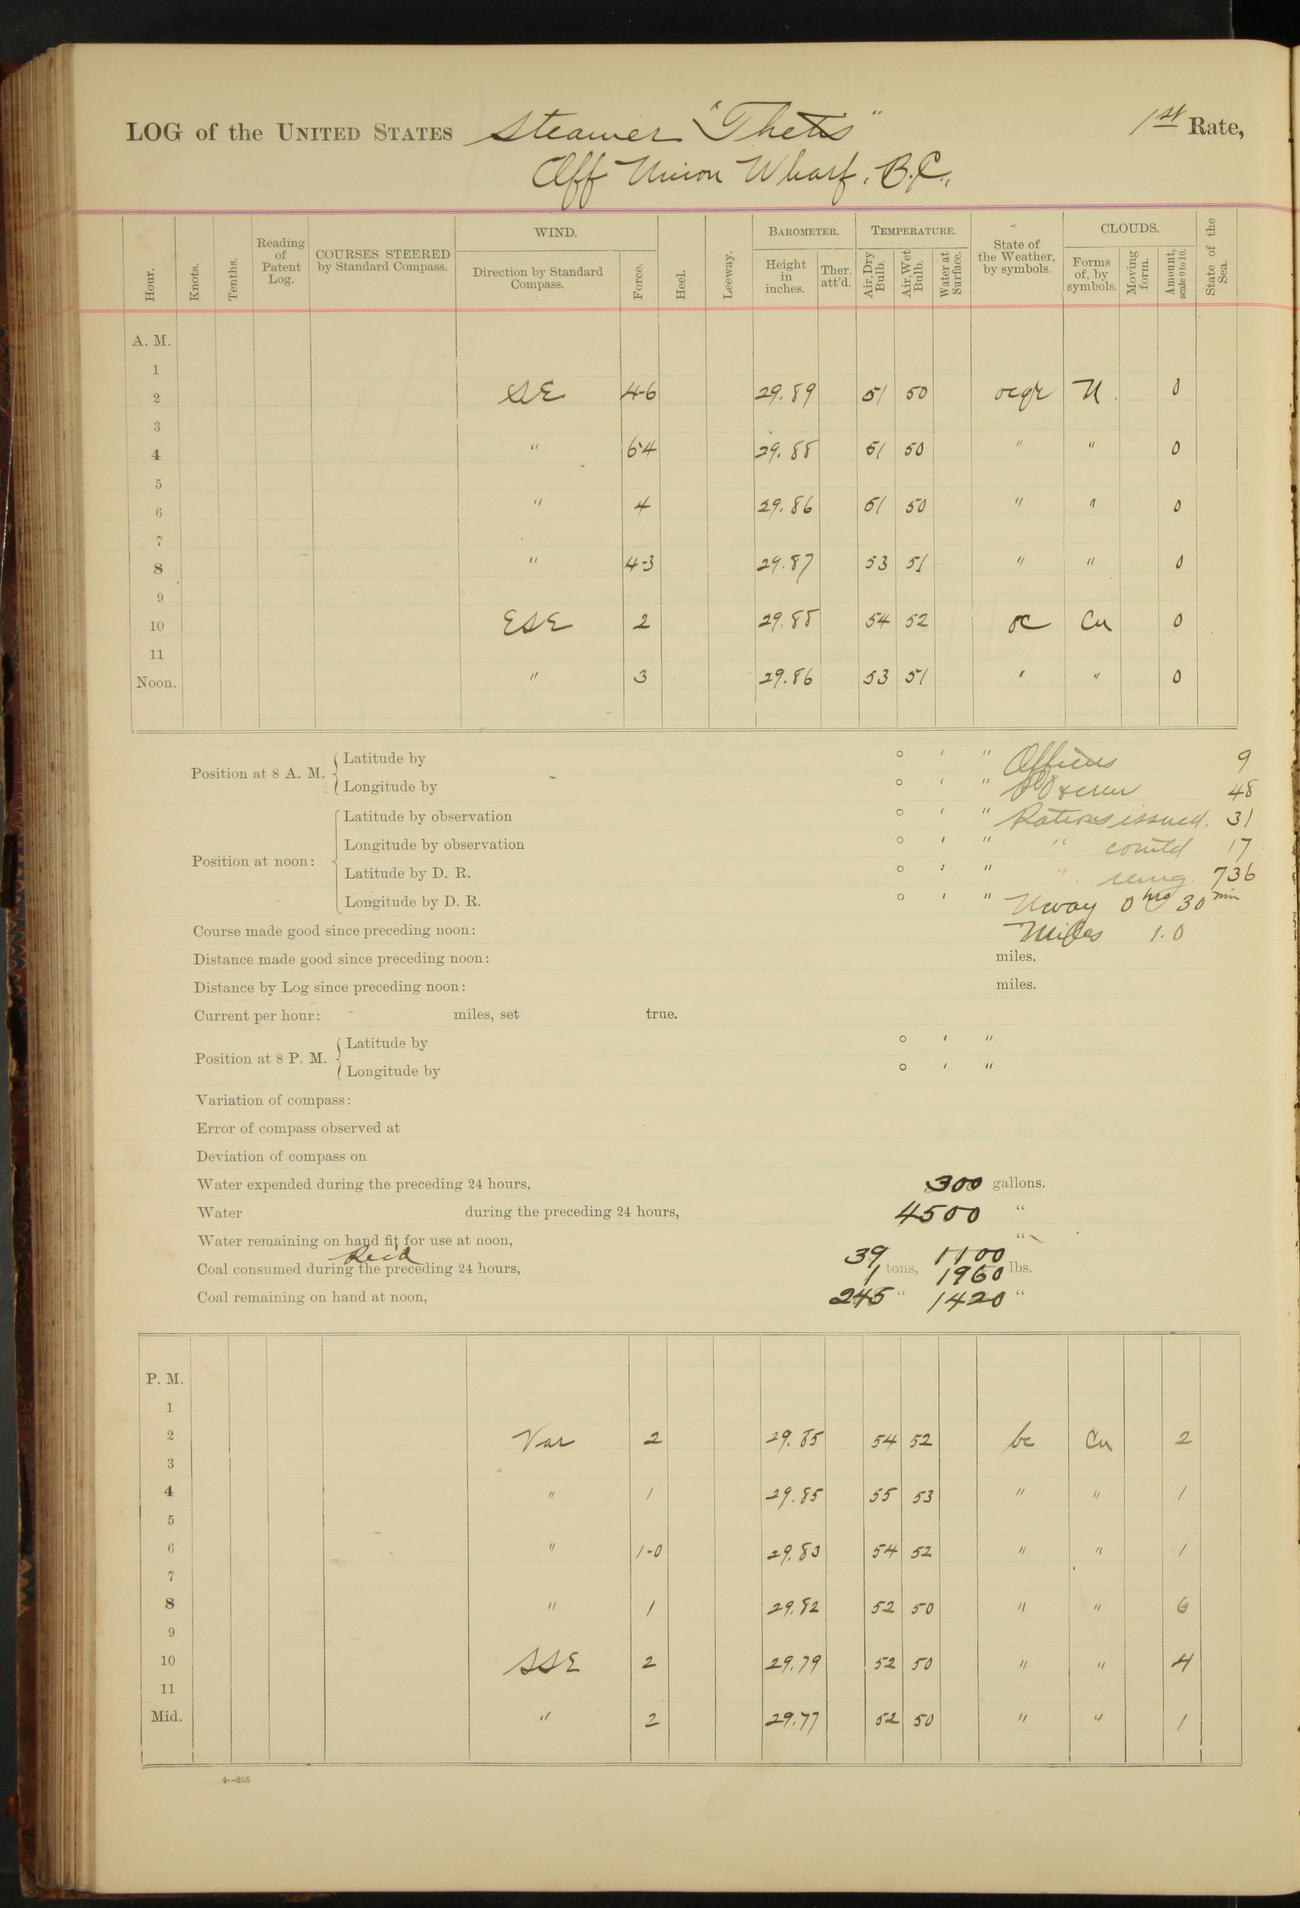 LOG of the UNITED STATES Steamer "Thetis" 1st Rate,
Off Union Wharf, B.C.,
Hour. Knots. Tenths. Reading of Patent Log. COURSES STEERED by Standard Compass. WIND. Direction by Standard Compass. Force. Heel. Leeway. BAROMETER. Height in inches. Ther. att'd. TEMPERATURE. Air, Dry Bulb. Air, Wet Bulb. Water at Surface. State of the Weather, by symbols. CLOUDS. Forms of, by symbols. Moving form. Amount, scale 0 to 10. State of the Sea.
A. M.
1
2 SE 4-6 29.89 51 50 ocqr N 0
3
4 " 6-4 29.88 51 50 " " 0
5
6 " 4 29.86 51 50 " " 0
7
8 " 4-3 29.87 53 51 " " 0
9
10 ESE 2 29.88 54 52 oc Cu 0
11
Noon. " 3 29.86 53 51 " " 0
Position at 8 A. M. Latitude by ° ' " Officers 9
Longitude by ° ' " crew 48
Position at noon: Latitude by observation ° ' " Rations issued. 31
Longitude by observation ° ' " " comtd 17
Latitude by D. R. ° ' " " remg. 736
Longitude by D. R. ° ' " Uway 0 hrs 30 min
Course made good since preceding noon: Miles 1.0
Distance made good since preceding noon: miles.
Distance by Log since preceding noon: miles.
Current per hour: miles, set true.
Position at 8 P. M. Latitude by ° ' "
Longitude by ° ' "
Variation of compass:
Error of compass observed at
Deviation of compass on
Water expended during the preceding 24 hours, 300 gallons.
Water during the preceding 24 hours, 4500 "
Water remaining on hand fit for use at noon, "
Rec'd 39 1100
Coal consumed during the preceding 24 hours, 1 tons, 1960 lbs.
Coal remaining on hand at noon, 245 " 1420 "
P. M.
1
2 Var 2 29.85 54 52 bc Cu 2
3
4 " 1 29.85 55 53 " " 1
5
6 " 1-0 29.83 54 52 " " 1
7
8 " 1 29.82 52 50 " " 6
9
10 SSE 2 29.79 52 50 " " 4
11
Mid. " 2 29.77 52 50 " " 1
4--206